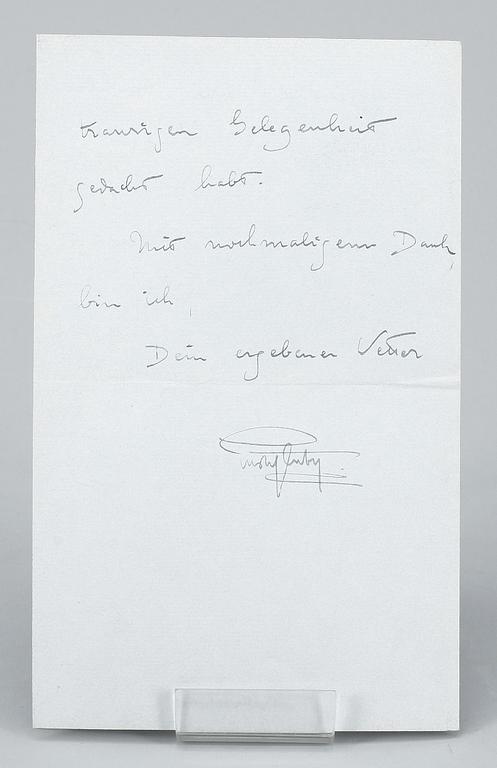 traurigen Gelegenheit
gedacht habt.
Mit nochmaligem Dank,
bin ich,
Dein ergebener Vetter